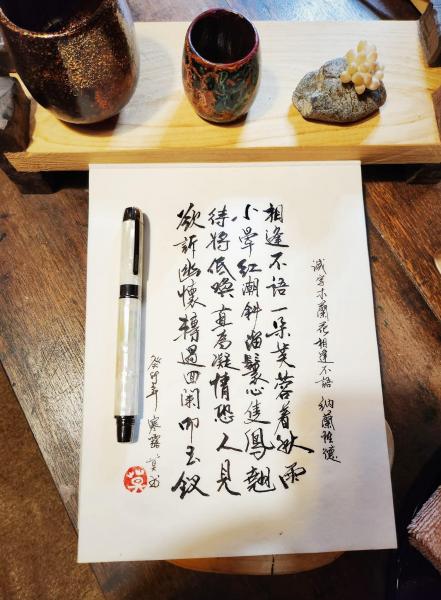 減字木蘭花相逢不語 納蘭性德
相逢不語一朵芙蓉着秋雨
小暈紅潮斜溜鬟心隻鳳翹
待將低喚直為凝情恐人見
欲訴幽懷轉過回闌叩玉釵
癸卯年 寒露